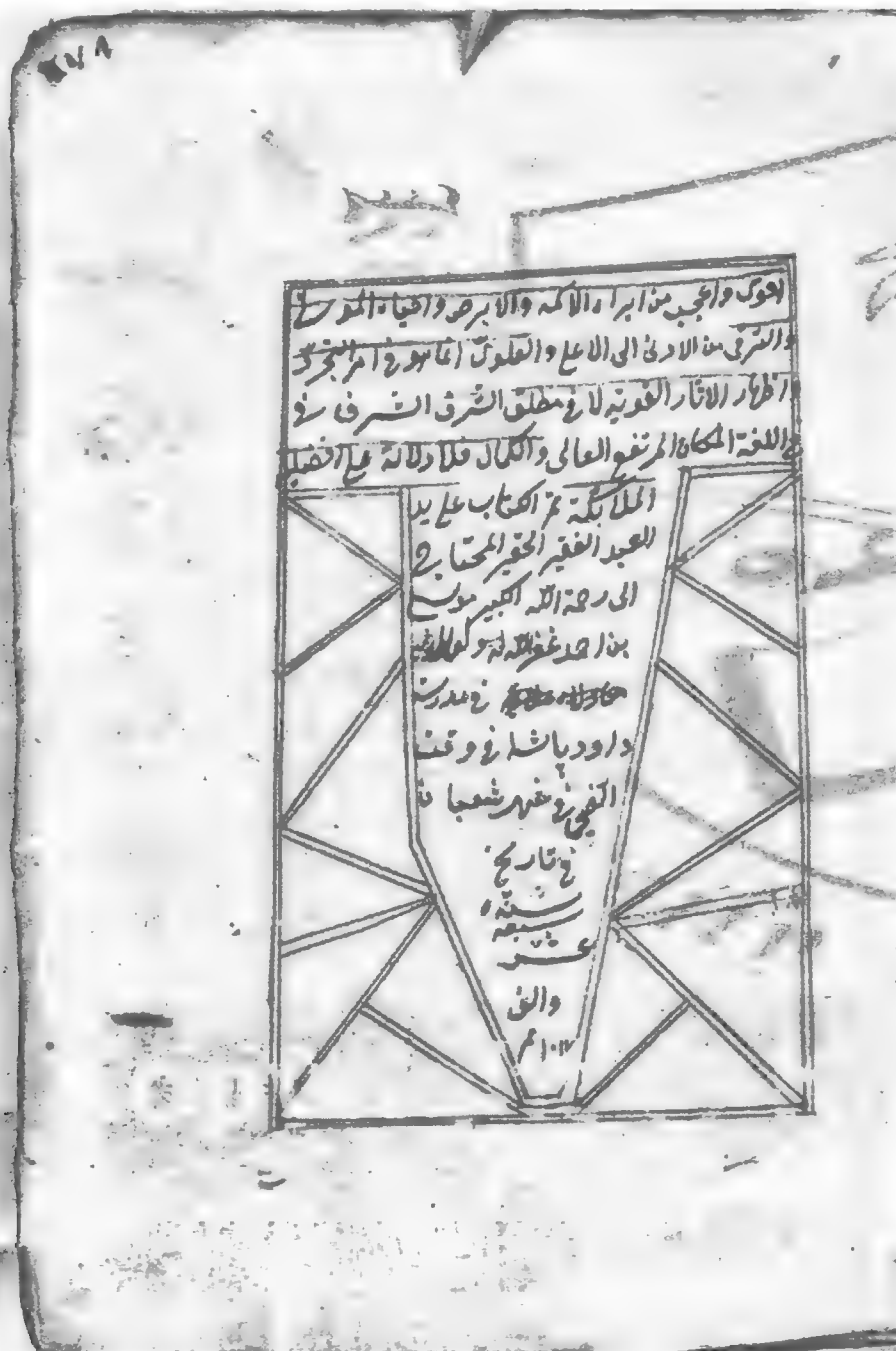 اقوى واعجب من ابراء الاكمه والابرص واحياء الموتى
والترقى من الادنى الى الاعلى والعلوى انما هو فى امر التجرد
واظهار الاثار القوية لا فى مطلق الشرف الشرف فى
فى اللغة المكان المرتفع العالى والكمال فلا دلالة على افضلية
الملائكة تم الكتاب على يد
العبد الفقير الحقير المحتاج
الى رحمة الله الكبير
بن احمد غفر الله له
فى مدرسة
داود پاشا فى وقت
فى شهر شعبان
فى تاريخ
سنة
سبعة
عشر
والف
١٠١٧ م